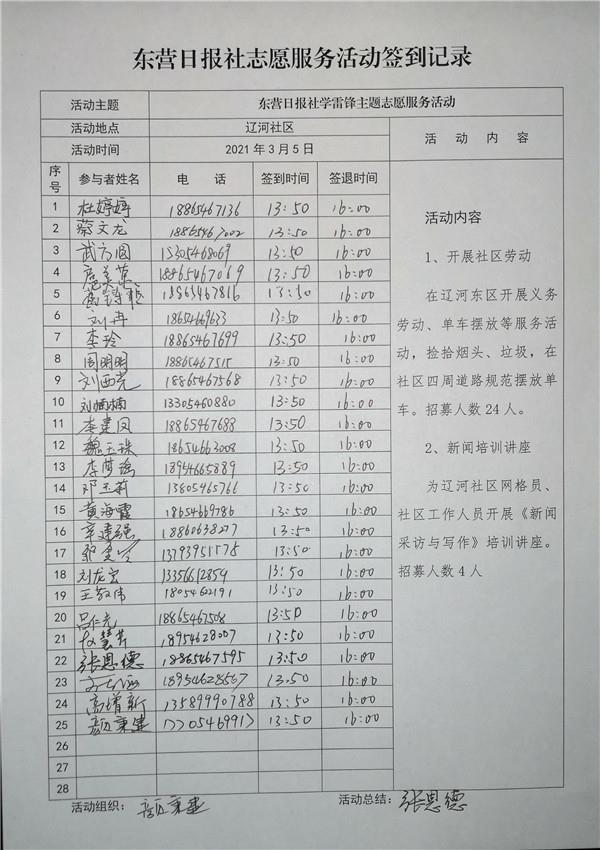 东营日报社志愿服务活动签到记录
活动主题 东营日报社学雷锋主题志愿服务活动
活动地点 辽河社区 活动内容
活动时间 2021年3月5日
序号 参与者姓名 电话 签到时间 签退时间
1 杜婷婷 18865467136 13:50 16:00
2 蔡文龙 18865467002 13:50 16:00
3 15305468069 13:50 16:00
4 18865467069 13:50 16:00
5 18865467816 13:50 16:00
6 刘冉 13:50 16:00
7 李玲 18865467699 13:50 16:00
8 周明明 18865467515 13:50 16:00
9 刘西尧 18865467568 13:50 16:00
10 刘楠楠 13305460880 13:50 16:00
11 李建凤 18865467688 13:50 16:00
12 魏玉珠 18654663008 13:50 16:00
13 18954665889 13:50 16:00
14 邓玉莉 13605465766 13:50 16:00
15 黄海霞 18654669786 13:50 16:00
16 辛建强 13:50 16:00
17 13:50 16:00
18 刘龙宏 13356612859 13:50 16:00
19 王敬伟 18054662191 13:50 16:00
20 吕仁亮 18865467508 13:50 16:00
21 赵慧芹 18954628007 13:50 16:00
22 张恩德 18865467595 13:50 16:00
23 18954628567 13:50 16:00
24 高增新 13589990788 13:50 16:00
25 颜秉建 13:50 16:00
26
27
28
活动内容
1、开展社区劳动
在辽河东区开展义务
劳动、单车摆放等服务活
动，捡拾烟头、垃圾，在
社区四周道路规范摆放单
车。招募人数24人。
2、新闻培训讲座
为辽河社区网格员、
社区工作人员开展《新闻
采访与写作》培训讲座。
招募人数4人
活动组织：颜秉建 活动总结：张恩德